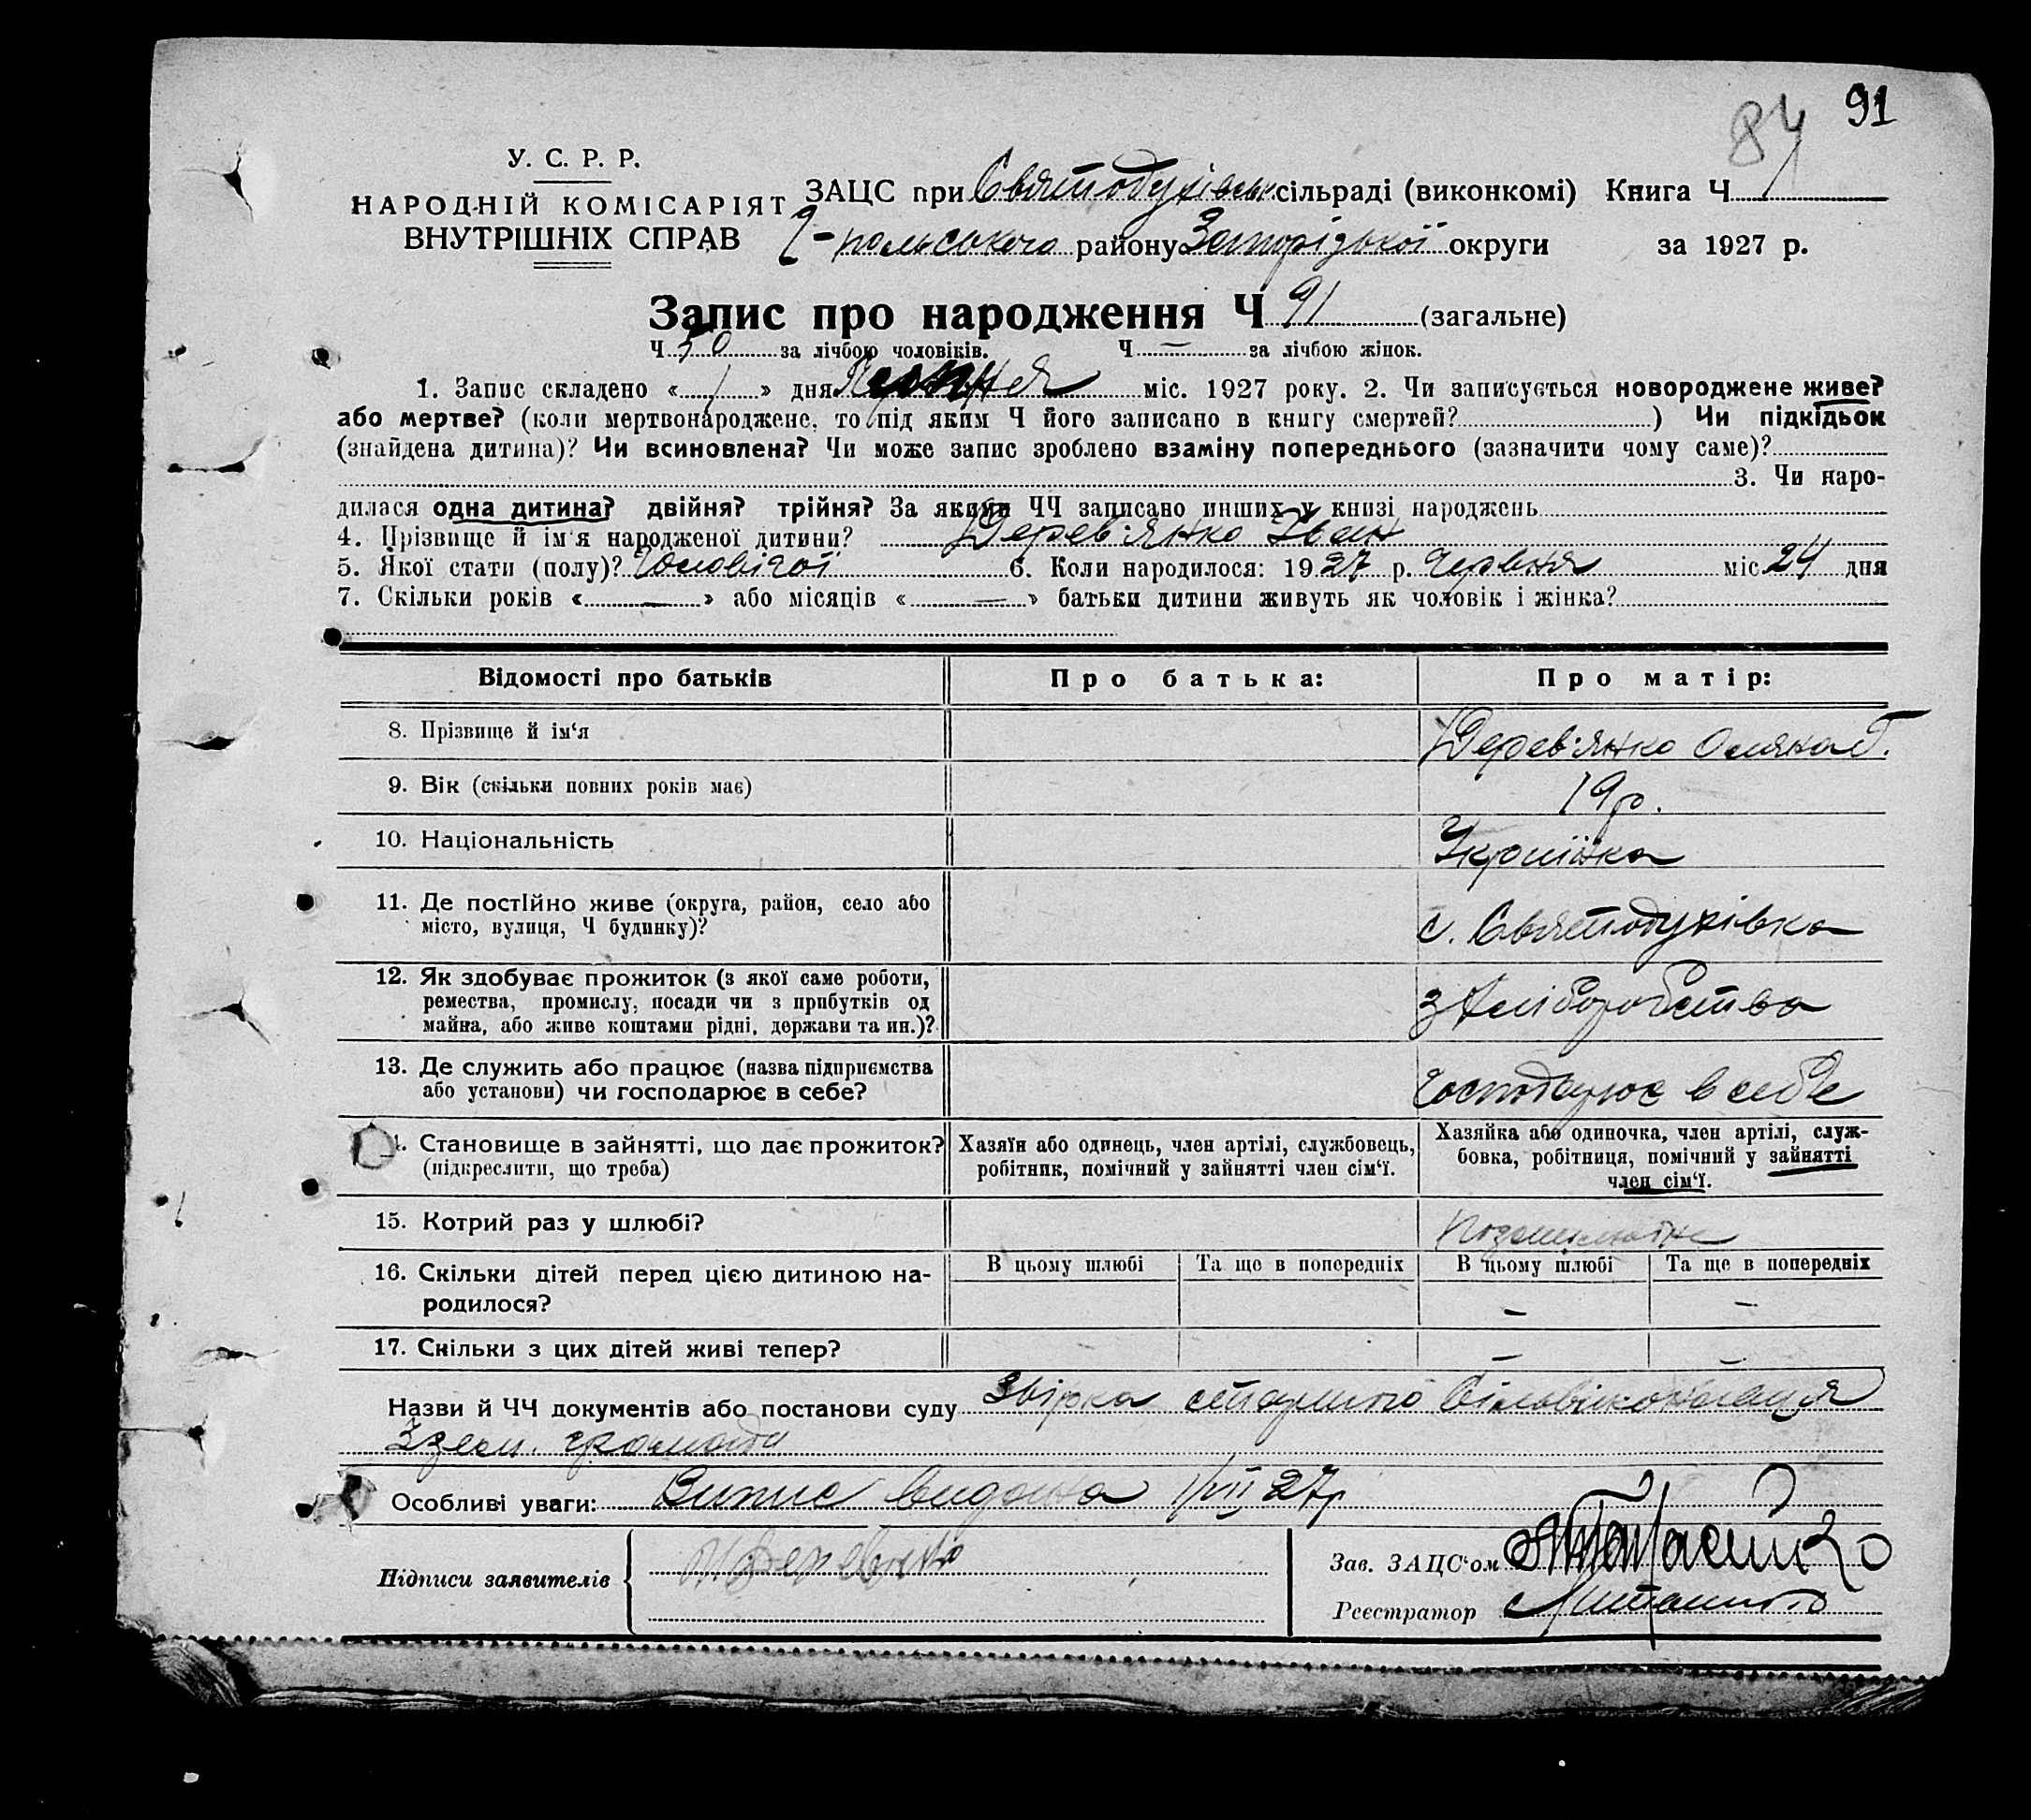 91
84
У. С. Р. Р.
НАРОДНІЙ КОМІСАРІЯТ
ВНУТРІШНІХ СПРАВ
ЗАЦС при Святодухівськ. сільраді (виконкомі) Книга Ч
-польського району Запорізької округи за 1927 р.
Запис про народження Ч 91 (загальне)
Ч 50 за лічбою чоловіків. Ч — за лічбою жінок.
1. Запис складено « 1 » дня міс. 1927 року. 2. Чи записується новороджене живе?
або мертве? (коли мертвонароджене, то під яким Ч його записано в книгу смертей? ) Чи підкідьок
(знайдена дитина)? Чи всиновлена? Чи може запис зроблено взаміну попереднього (зазначити чому саме)?
3. Чи наро-
дилася одна дитина? двійня? трійня? За якими ЧЧ записано инших у книзі народжень
4. Прізвище й ім'я народженої дитини? Дерев'янко Іван
5. Якої стати (полу)? Чоловічої 6. Коли народилося: 1927 р. Червня міс. 24 дня
7. Скільки років « — » або місяців « — » батьки дитини живуть як чоловік і жінка?
Відомості про батьків Про батька: Про матір:
8. Прізвище й ім'я Дерев'янко
9. Вік (скільки повних років має) 19 р.
10. Національність Українка
11. Де постійно живе (округа, район, село або
місто, вулиця, Ч будинку)? с. Святодухівка
12. Як здобуває прожиток (з якої саме роботи,
ремества, промислу, посади чи з прибутків од
майна, або живе коштами рідні, держави та ин.)? з хліборобства
13. Де служить або працює (назва підприємства
або установи) чи господарює в себе? господарює в себе
14. Становище в зайнятті, що дає прожиток?
(підкреслити, що треба)
Хазяїн або одинець, член артілі, службовець,
робітник, помічний у зайнятті член сім'ї.
Хазяйка або одиночка, член артілі, служ-
бовка, робітниця, помічний у зайнятті
член сім'ї.
15. Котрий раз у шлюбі?
16. Скільки дітей перед цією дитиною на-
родилося?
В цьому шлюбі Та ще в попередніх В цьому шлюбі Та ще в попередніх
— —
17. Скільки з цих дітей живі тепер? —
Назви й ЧЧ документів або постанови суду
Особливі уваги: Випис видана 1/VII 27р
Підписи заявителів
Зав. ЗАЦС'ом
Реєстратор